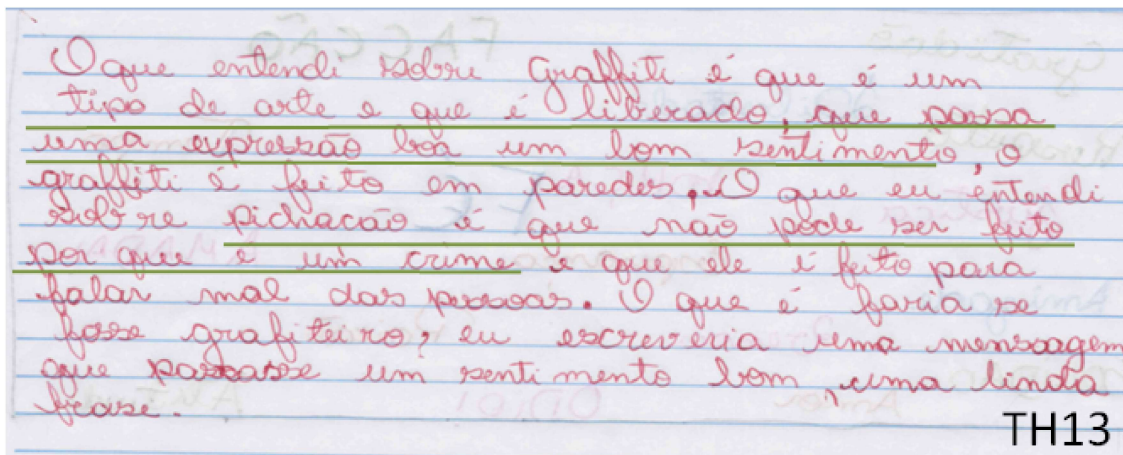 O que entendi sobre Graffiti é que é um
tipo de arte e que é liberado, que passa
uma expressão boa um bom sentimento, o
graffiti é feito em paredes, O que eu entendi
sobre pichacão é que não pode ser feito
por que é um crime e que ele é feito para
falar mal das pessoas. O que é faria se
fosse grafiteiro, eu escreveria uma mensagem
que passasse um sentimento bom, uma linda
frase.
TH13